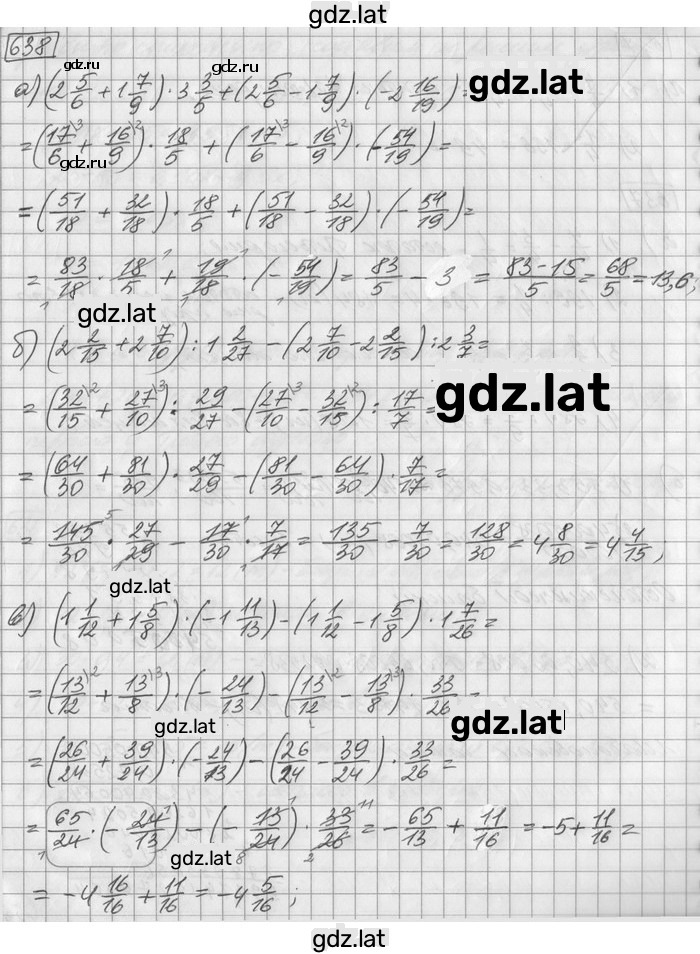 gdz.lat
638
а) (2 5/6 + 1 7/9) · 3 3/5 + (2 5/6 − 1 7/9) · (−2 16/19) =
gdz.lat
gdz.lat
= (17/6 \3 + 16/9 \2) · 18/5 + (17/6 \3 − 16/9 \2) · (−54/19) =
= (51/18 + 32/18) · 18/5 + (51/18 − 32/18) · (−54/19) =
= 83/18 · 18/5 + 19/18 · (−54/19) = 83/5 − 3 = 83−15/5 = 68/5 = 13,6;
gdz.lat
б) (2 2/15 + 2 7/10) : 1 2/27 − (2 7/10 − 2 2/15) : 2 3/7 =
= (32/15 \2 + 27/10 \3) : 29/27 − (27/10 \3 − 32/15 \2) : 17/7 =
gdz.lat
= (64/30 + 81/30) · 27/29 − (81/30 − 64/30) · 7/17 =
= 145/30 · 27/29 − 17/30 · 7/17 = 135/30 − 7/30 = 128/30 = 4 8/30 = 4 4/15;
gdz.lat
в) (1 1/12 + 1 5/8) · (−1 11/13) − (1 1/12 − 1 5/8) · 1 7/26 =
= (13/12 \2 + 13/8 \3) · (−24/13) − (13/12 \2 − 13/8 \3) · 33/26 =
gdz.lat
gdz.lat
= (26/24 + 39/24) · (−24/13) − (26/24 − 39/24) · 33/26 =
= 65/24 · (−24/13) − (−13/24) · 33/26 = −65/13 + 11/16 = −5 + 11/16 =
gdz.lat
= −4 16/16 + 11/16 = −4 5/16;
gdz.lat